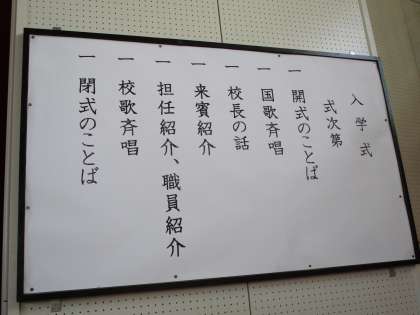 入学式
式次第
一 開式のことば
一 国歌斉唱
一 校長の話
一 来賓紹介
一 担任紹介、職員紹介
一 校歌斉唱
一 閉式のことば